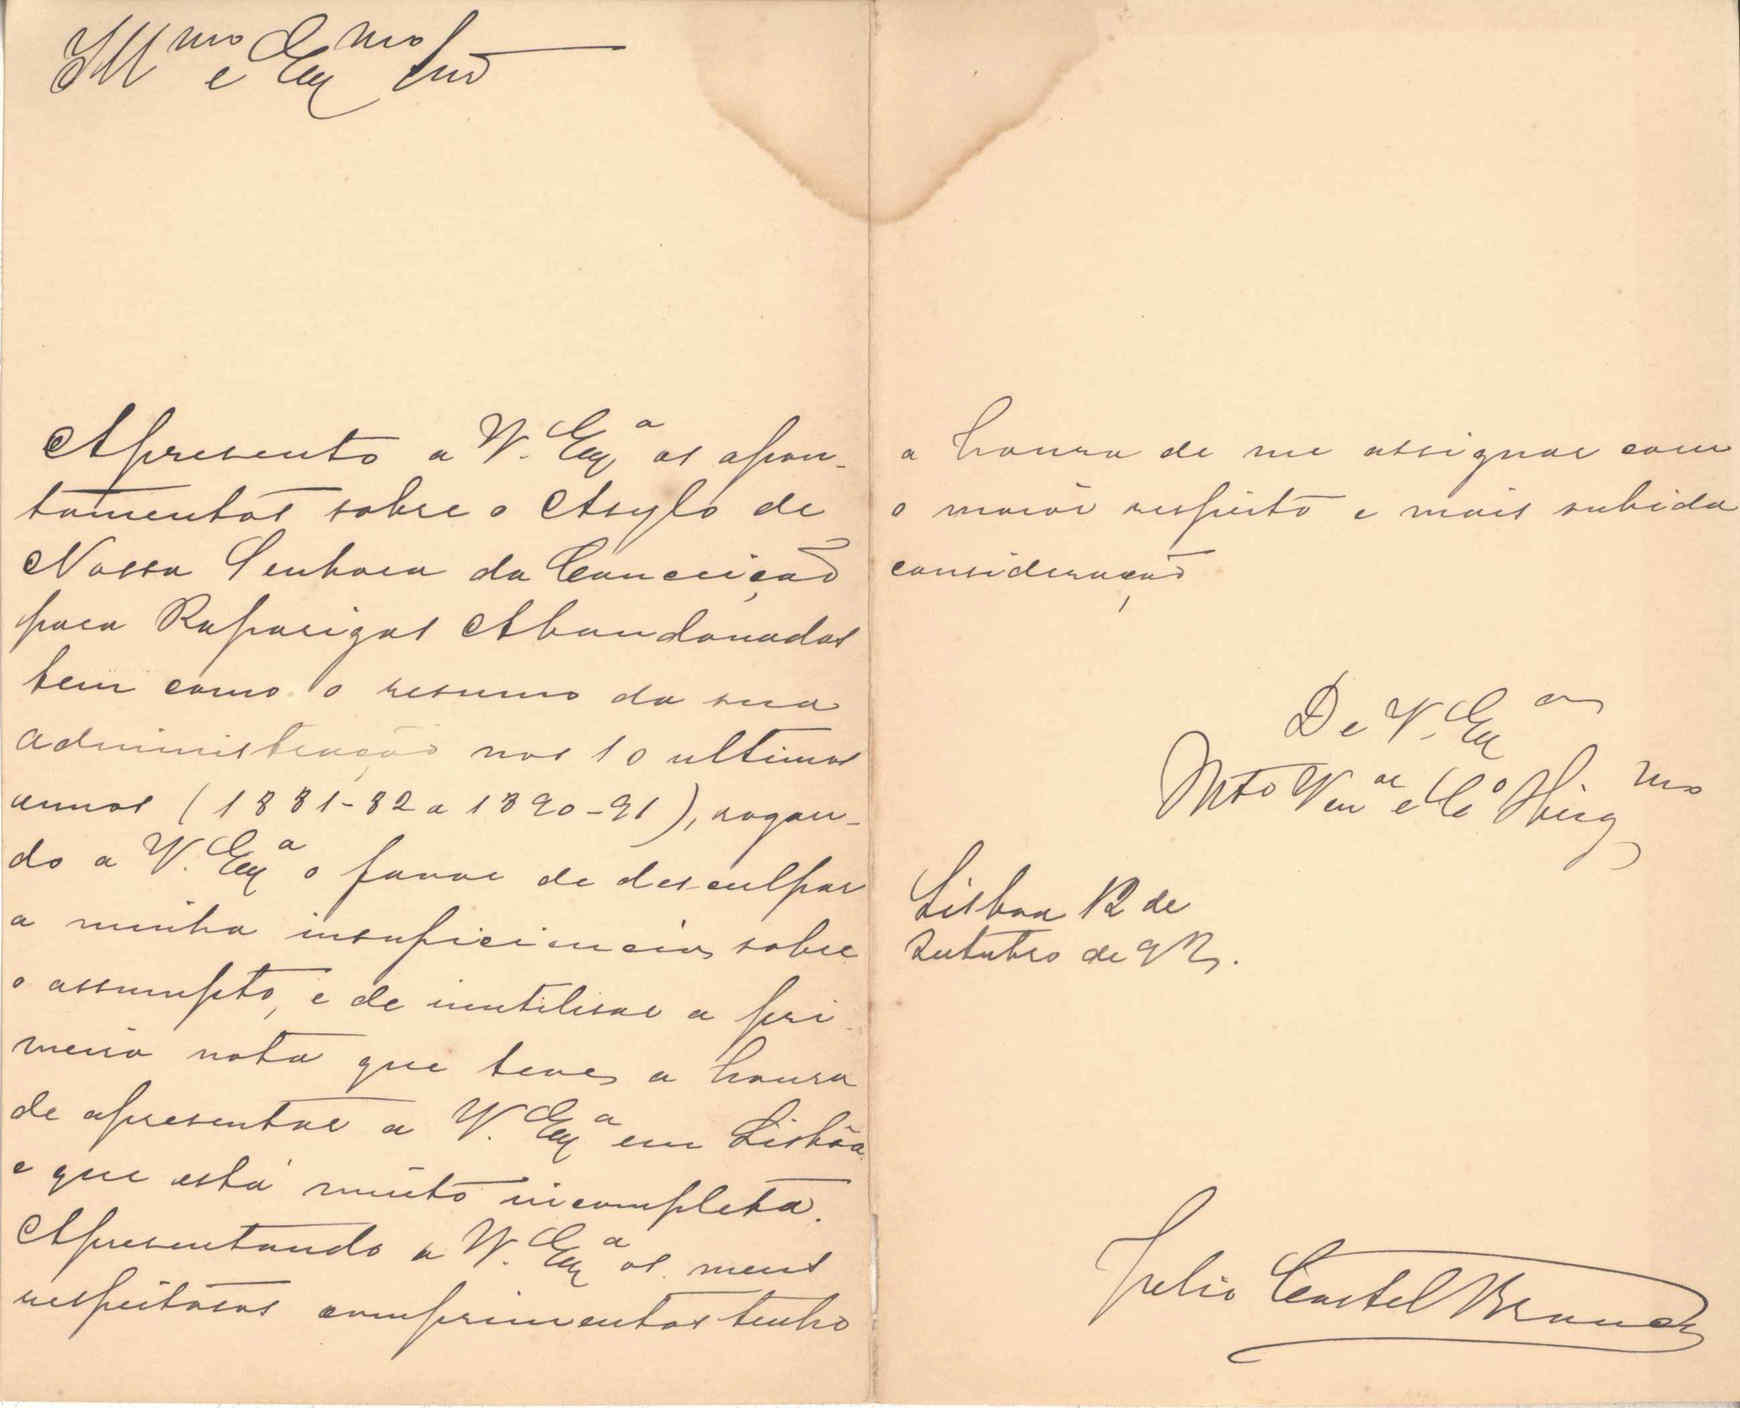 Illmo e Exmo Snr
Apresento a V. Exa os apon-
tamentos sobre o Asylo de
Nossa Senhora da Conceição
para Raparigas Abandonadas
bem como o resumo da sua
administração nos 10 ultimos
annos (1881-82 a 1890-91), rogan-
do a V. Exa o favor de desculpar
a minha insuficiencia sobre
o assumpto, e de inutilisar a pri-
meira nota que teve a honra
de apresentar a V. Exa em Lisbôa
e que está muito incompleta.
Apresentando a V. Exa os meus
respeitosos comprimentos tenho
a honra de me assignar com
o maior respeito e mais subida
consideração
De V. Exa
Mto Venor e Co Obrigmo
Lisboa 12 de
Outubro de 92.
Julio Castel Branco